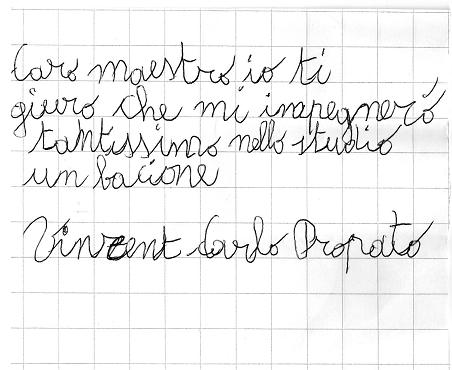 Caro maestro io ti
giuro che mi impegnerò
tantissimo nello studio
un bacione
Vinzent Carlo Propato